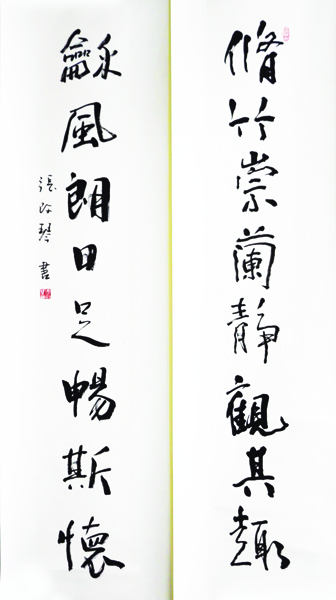 脩竹崇蘭靜觀其趣
龢風朗日足暢斯懷
張改琴書